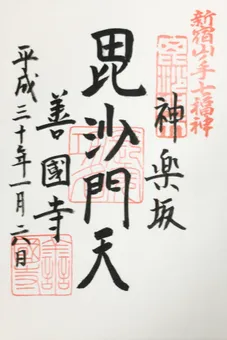 新宿山ノ手七福神
神楽坂
毘沙門天
善國寺
平成三十年一月六日